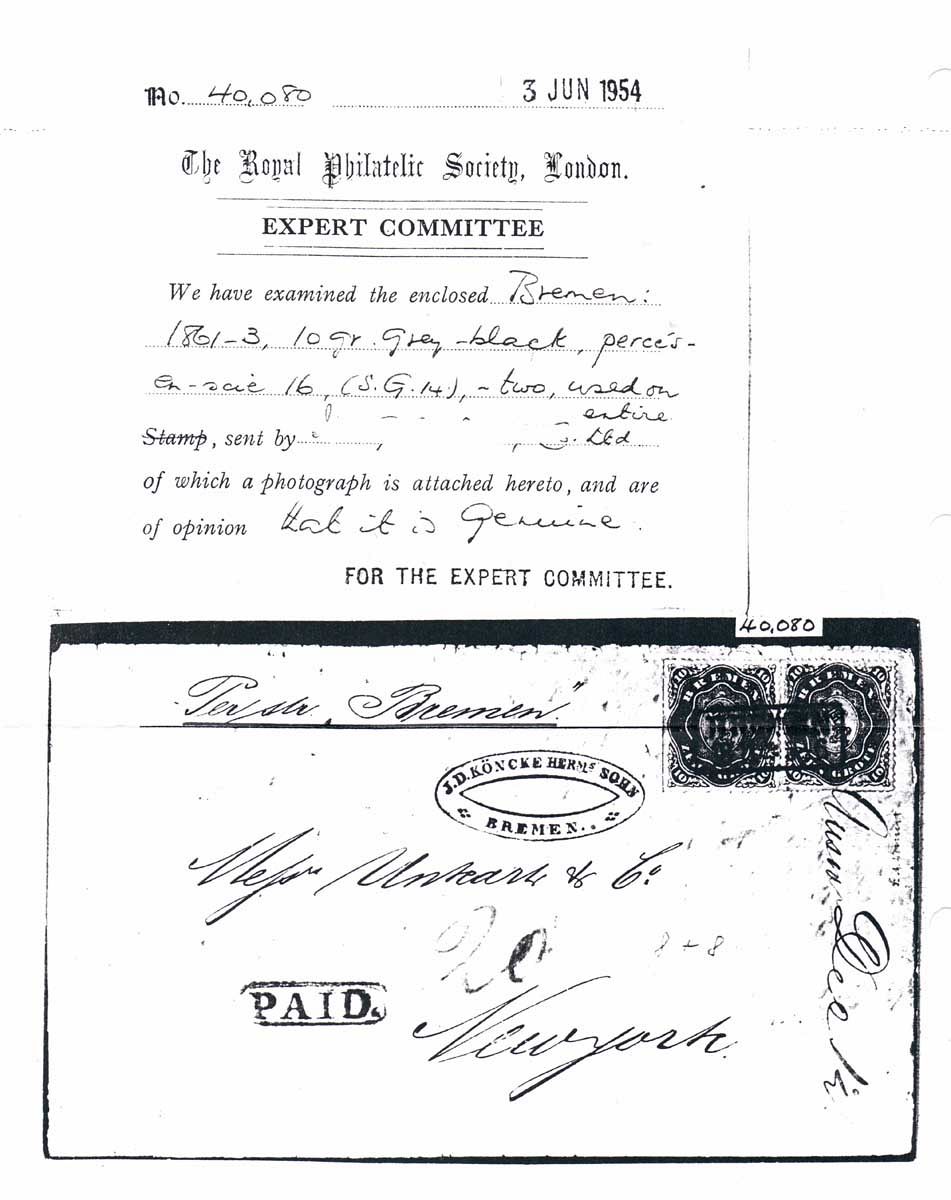 No. 40,080 3 JUN 1954
The Royal Philatelic Society, London.
EXPERT COMMITTEE
We have examined the enclosed Bremen:
1861-3, 10 gr. Grey-black, percés-
en-scie 16, (S.G.14), - two, used on
entire
Stamp, sent by , Ltd
of which a photograph is attached hereto, and are
of opinion that it is Genuine.
FOR THE EXPERT COMMITTEE.
40,080
10 BREMEN 10 10 BREMEN 10
Per str. "Bremen"
10 10 10 GROTE 10
J.D. KÖNCKE HERMS SOHN
BREMEN..
Messrs Unkart & Co
20
8 + 8
PAID.
Newyork.